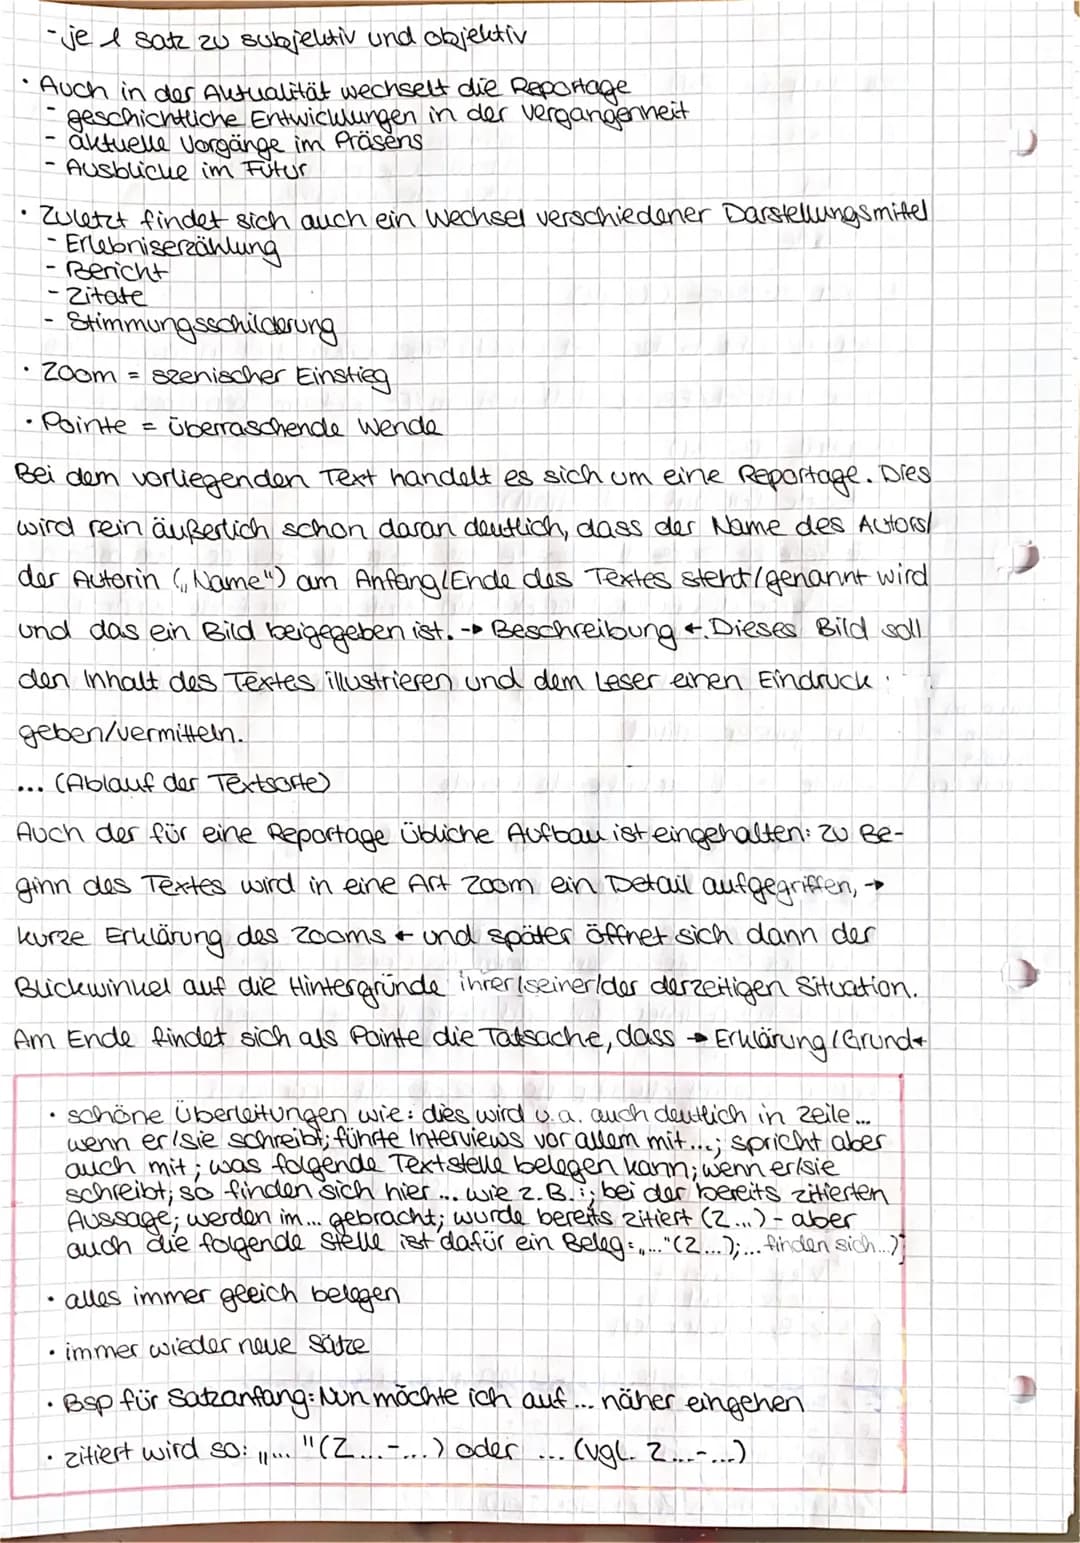 - je 1 Satz zu subjektiv und objektiv
• Auch in der Aktualität wechselt die Reportage
- geschichtliche Entwicklungen in der Vergangenheit
- aktuelle Vorgänge im Präsens
- Ausblicke im Futur
• Zuletzt findet sich auch ein Wechsel verschiedener Darstellungsmittel
- Erlebniserzählung
- Bericht
- Zitate
- Stimmungsschilderung
• Zoom = szenischer Einstieg
• Pointe = überraschende Wende
Bei dem vorliegenden Text handelt es sich um eine Reportage. Dies
wird rein äußerlich schon daran deutlich, dass der Name des Autors/
der Autorin („Name") am Anfang/Ende des Textes steht/genannt wird
und das ein Bild beigegeben ist. → Beschreibung ←. Dieses Bild soll
den Inhalt des Textes illustrieren und dem Leser einen Eindruck
geben/vermitteln.
... (Ablauf der Textsorte)
Auch der für eine Reportage übliche Aufbau ist eingehalten: Zu Be-
ginn des Textes wird in eine Art Zoom ein Detail aufgegriffen, →
kurze Erklärung des Zooms ← und später öffnet sich dann der
Blickwinkel auf die Hintergründe ihrer/seiner/der derzeitigen Situation.
Am Ende findet sich als Pointe die Tatsache, dass → Erklärung/Grund←
• schöne Überleitungen wie: dies wird u.a. auch deutlich in Zeile...
wenn er/sie schreibt; führte Interviews vor allem mit...; spricht aber
auch mit; was folgende Textstelle belegen kann; wenn er/sie
schreibt; so finden sich hier ... wie z.B.:; bei der bereits zitierten
Aussage; werden im... gebracht; wurde bereits zitiert (Z...) - aber
auch die folgende Stelle ist dafür ein Beleg: „..."(Z...);... finden sich...);
• alles immer gleich belegen
• immer wieder neue Sätze
• Bsp für Satzanfang: Nun möchte ich auf ... näher eingehen
• zitiert wird so: „... "(Z...-...) oder ... (vgl. Z...-...)